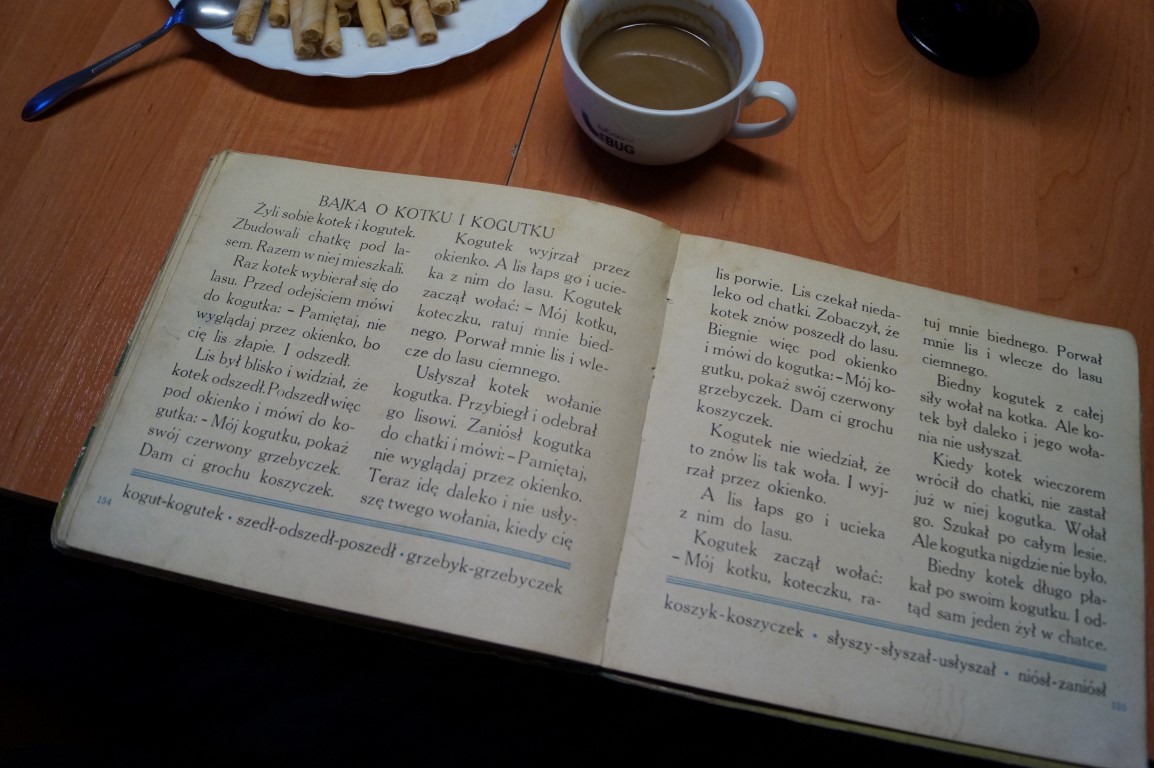 BUG
BAJKA O KOTKU I KOGUTKU
Żyli sobie kotek i kogutek.
Zbudowali chatkę pod la-
sem. Razem w niej mieszkali.
Raz kotek wybierał się do
lasu. Przed odejściem mówi
do kogutka: – Pamiętaj, nie
wyglądaj przez okienko, bo
cię lis złapie. I odszedł.
Lis był blisko i widział, że
kotek odszedł. Podszedł więc
pod okienko i mówi do ko-
gutka: – Mój kogutku, pokaż
swój czerwony grzebyczek.
Dam ci grochu koszyczek.
Kogutek wyjrzał przez
okienko. A lis łaps go i ucie-
ka z nim do lasu. Kogutek
zaczął wołać: – Mój kotku,
koteczku, ratuj mnie bied-
nego. Porwał mnie lis i wle-
cze do lasu ciemnego.
Usłyszał kotek wołanie
kogutka. Przybiegł i odebrał
go lisowi. Zaniósł kogutka
do chatki i mówi: – Pamiętaj,
nie wyglądaj przez okienko.
Teraz idę daleko i nie usły-
szę twego wołania, kiedy cię
154
kogut-kogutek • szedł-odszedł-poszedł • grzebyk-grzebyczek
lis porwie. Lis czekał nieda-
leko od chatki. Zobaczył, że
kotek znów poszedł do lasu.
Biegnie więc pod okienko
i mówi do kogutka: – Mój ko-
gutku, pokaż swój czerwony
grzebyczek. Dam ci grochu
koszyczek.
Kogutek nie wiedział, że
to znów lis tak woła. I wyj-
rzał przez okienko.
A lis łaps go i ucieka
z nim do lasu.
Kogutek zaczął wołać:
– Mój kotku, koteczku, ra-
tuj mnie biednego. Porwał
mnie lis i wlecze do lasu
ciemnego.
Biedny kogutek z całej
siły wołał na kotka. Ale ko-
tek był daleko i jego woła-
nia nie usłyszał.
Kiedy kotek wieczorem
wrócił do chatki, nie zastał
już w niej kogutka. Wołał
go. Szukał po całym lesie.
Ale kogutka nigdzie nie było.
Biedny kotek długo pła-
kał po swoim kogutku. I od-
tąd sam jeden żył w chatce.
koszyk-koszyczek • słyszy-słyszał-usłyszał • niósł-zaniósł
155